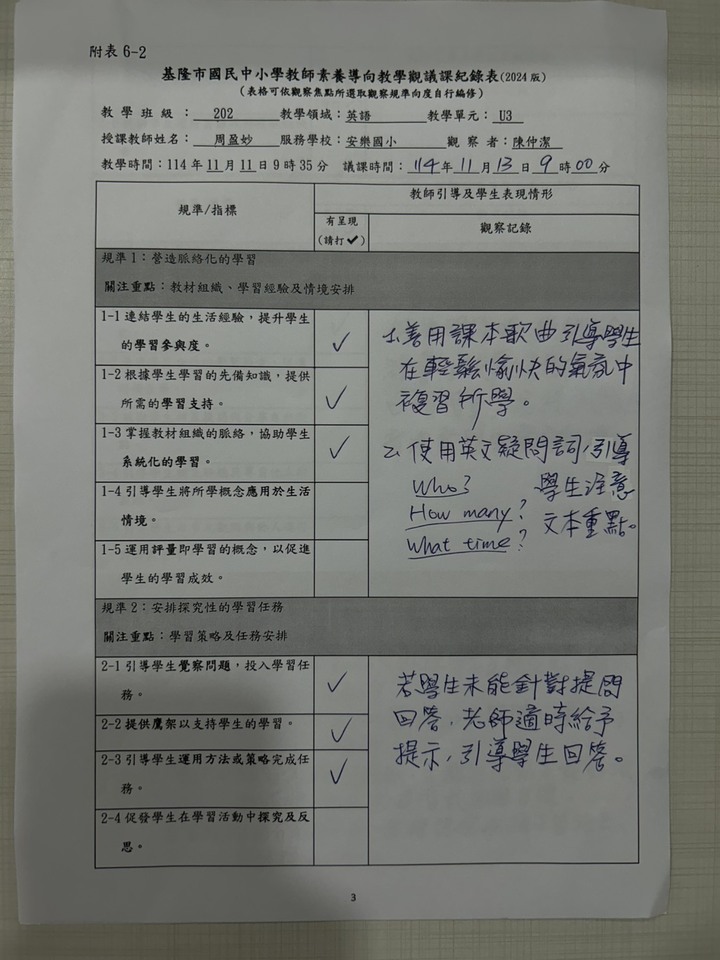 附表 6-2
基隆市國民中小學教師素養導向教學觀議課紀錄表(2024 版)
(表格可依觀察焦點所選取觀察規準向度自行編修)
教 學 班 級： 202 教學領域：英語 教學單元： U3
授課教師姓名： 周盈妙 服務學校：安樂國小 觀 察 者：陳仲潔
教學時間：114 年 11 月 11 日 9 時 35 分 議課時間： 114 年 11 月 13 日 9 時 00 分
規準/指標
教師引導及學生表現情形
有呈現
(請打✔)
觀察記錄
規準 1：營造脈絡化的學習
關注重點：教材組織、學習經驗及情境安排
1-1 連結學生的生活經驗，提升學生
的學習參與度。
✓
1-2 根據學生學習的先備知識，提供
所需的學習支持。
✓
1-3 掌握教材組織的脈絡，協助學生
系統化的學習。
✓
1-4 引導學生將所學概念應用於生活
情境。
1-5 運用評量即學習的概念，以促進
學生的學習成效。
1.善用課本歌曲引導學生
在輕鬆愉快的氣氛中
複習所學。
2.使用英文疑問詞,引導
Who? 學生注意
How many? 文本重點。
What time?
規準 2：安排探究性的學習任務
關注重點：學習策略及任務安排
2-1 引導學生覺察問題，投入學習任
務。
✓
2-2 提供鷹架以支持學生的學習。
✓
2-3 引導學生運用方法或策略完成任
務。
✓
2-4 促發學生在學習活動中探究及反
思。
若學生未能針對提問
回答,老師適時給予
提示,引導學生回答。
3